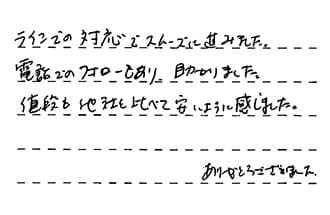 ラインでの対応でスムーズに進みました。
電話でのフォローもあり、助かりました。
値段も他社と比べて安いように感じました。
ありがとうございました。